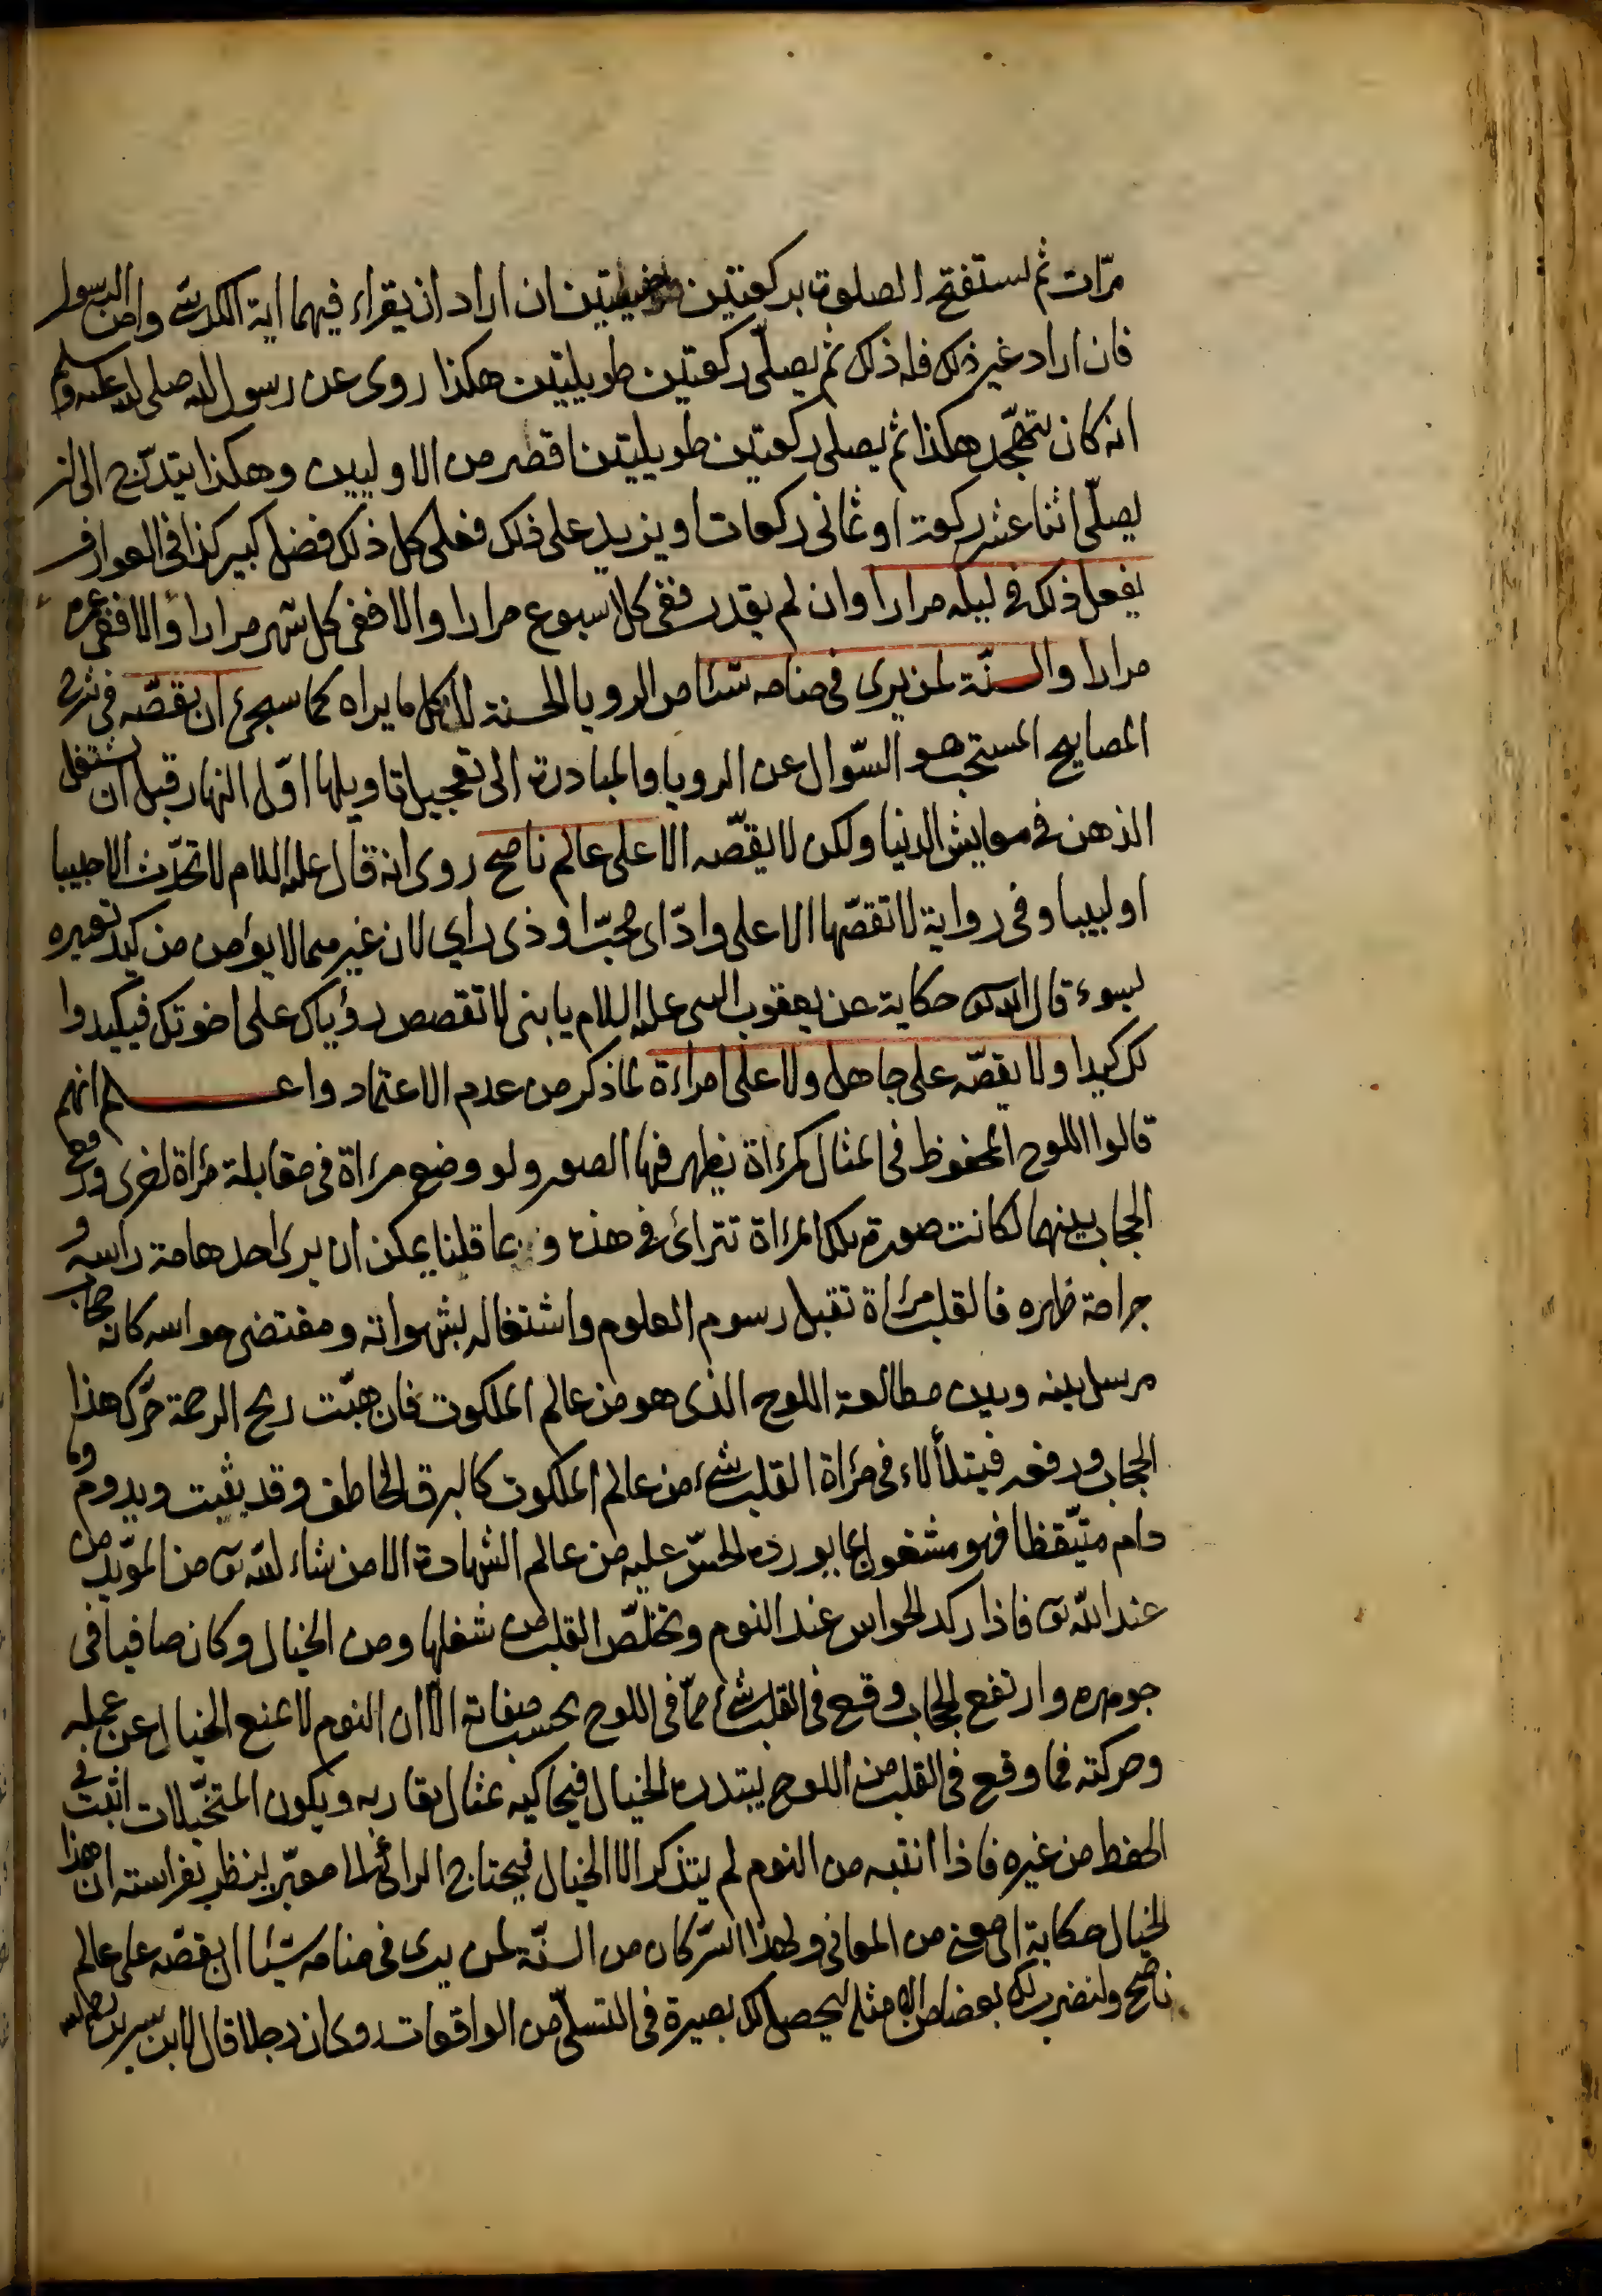 مرّات ثم يستفتح الصلوة بركعتين خفيفتين ان اراد ان يقراء فيهما اية الكرسى وامن الرسول
فان اراد غير ذلك فله ذلك ثم يصلّى ركعتين طويليتين هكذا روى عن رسول الله صلى الله عليه وسلم
انه كان يتهجّد هكذا ثم يصلى ركعتين طويليتين اقصر من الاوليين وهكذا يتدرّج الى ان
يصلّى اثنا عشر ركعة او ثمانى ركعات او يزيد على ذلك فعلى كل ذلك فضل كبير كذا فى العوارف
يفعل ذلك فى ليله مرارا وان لم يقدر ففى كل اسبوع مرارا والا ففى كل شهر مرارا والا ففى عمره
مرارا والسنّة لمن يرى فى منامه شئا من الرويا الحسنة لا كل ما يراه كما سيجئ ان يقصّه فى شرح
المصابيح المستحب هو السّوال عن الرويا والمبادرة الى تعجيل تاويلها اوّل النهار قبل ان يشتغل
الذهن فى معايش الدنيا ولكن لا يقصّه الا على عالم ناصح روى انه قال عليه السلام لا تحدّث الا حبيبا
او لبيبا وفى رواية لا تقصّها الا على وادّ اى محبّ او ذى راى لان غيرهما لا يؤمن من كيد تعبيره
بسوء قال الله تعالى حكاية عن يعقوب النبى عليه السلام يا بنى لا تقصص رؤياك على اخوتك فيكيدوا
لك كيدا ولا يقصّه على جاهل ولا على امراءة لما ذكر من عدم الاعتماد واعلم انهم
قالوا اللوح المحفوظ فى المثال كمرءاة يظهر فيها الصور ولو وضع مرءاة فى مقابلة مرءاة اخرى ورفع
الحجاب بينهما لكانت صورة تلك المرءاة تترائ فى هذه وبما قلنا يمكن ان يرى احد هامة راسه و
جراحة ظهره فالقلب مرءاة تقبل رسوم العلوم واشتغاله بشهواته ومقتضى حواسه كانه حجاب
مرسل بينه وبين مطالعة اللوح الذى هو من عالم الملكوت فان هبّت ريح الرحمة حرّك هذا
الحجاب ورفعه فيتلألاء فى مرءاة القلب شئ من عالم الملكوت كالبرق الخاطف وقد يثبت ويدوم وما
دام متيّقظا فهو مشغول بما يورده الحسّ عليه من عالم الشهادة الا من شاء الله تعالى من المؤيّد من
عند الله تعالى فاذا ركد الحواس عند النوم وتخلّص القلب من شغلها ومن الخيال وكان صافيا فى
جوهره وارتفع الحجاب وقع فى القلب شئ ممّا فى اللوح بحسب صفاته الا ان النوم لا يمنع الخيال عن عمله
وحركته فما وقع فى القلب من اللوح يبتدره الخيال فيحاكيه بمثال يقاربه ويكون المتخيّلات اثبت فى
الحفظ من غيره فاذا انتبه من النوم لم يتذكر الا الخيال فيحتاج الرائى الى معبّر ينظر بفراسته ان هذا
الخيال حكاية اى معنى من المعانى ولهذا السّر كان من السنّة لمن يرى فى منامه شيئا ان يقصّه على عالم
ناصح ولنضرب لك بعضا من الامثلة ليحصل لك بصيرة فى التسلّى من الواقعات روى ان رجلا قال لابن سيرين